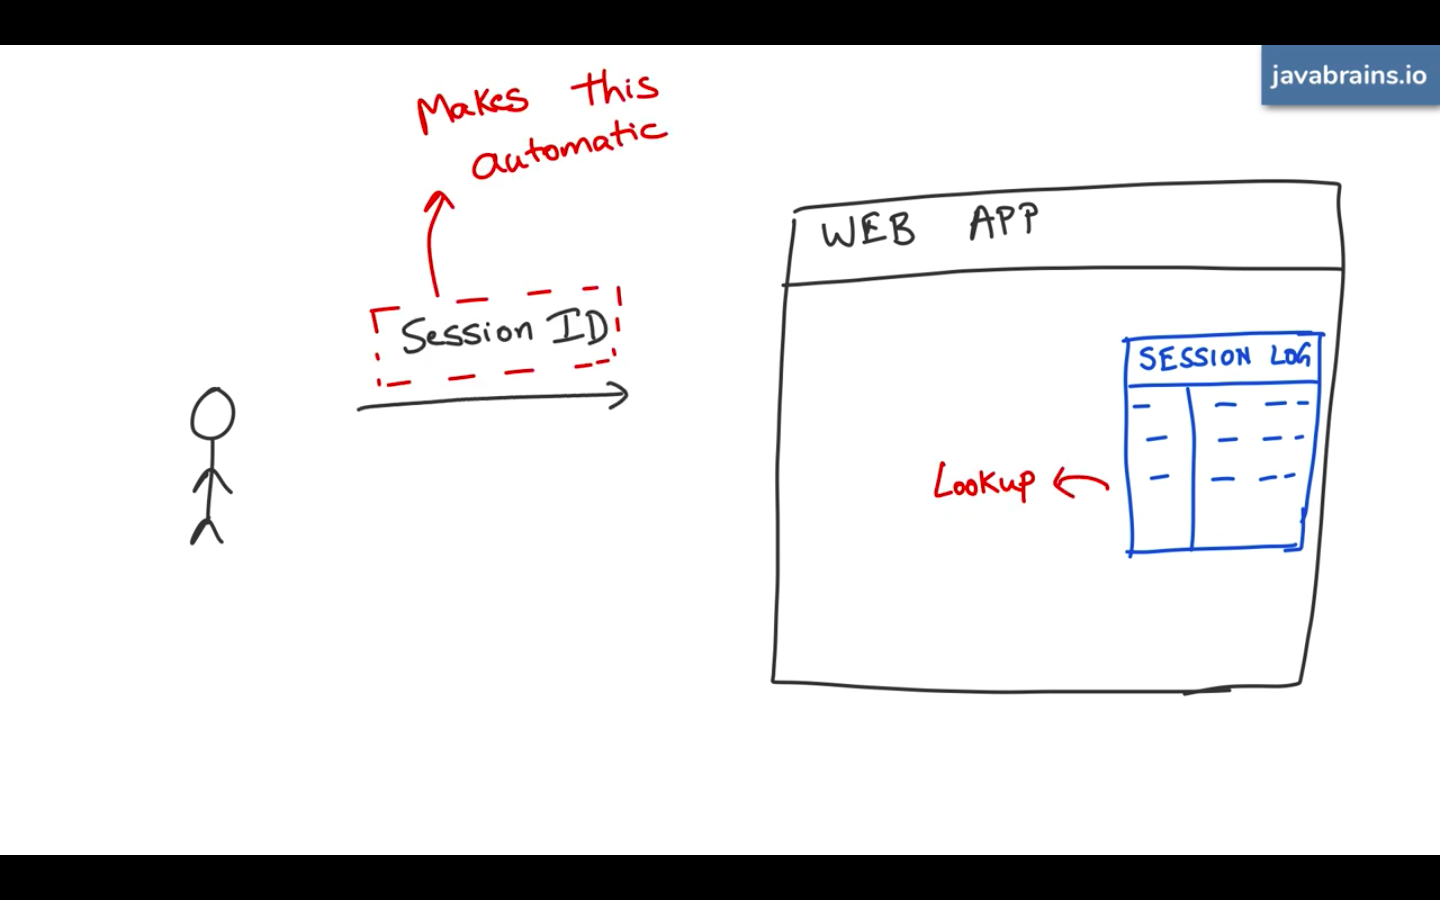 javabrains.io
Makes this
automatic
WEB APP
Session ID
SESSION LOG
Lookup